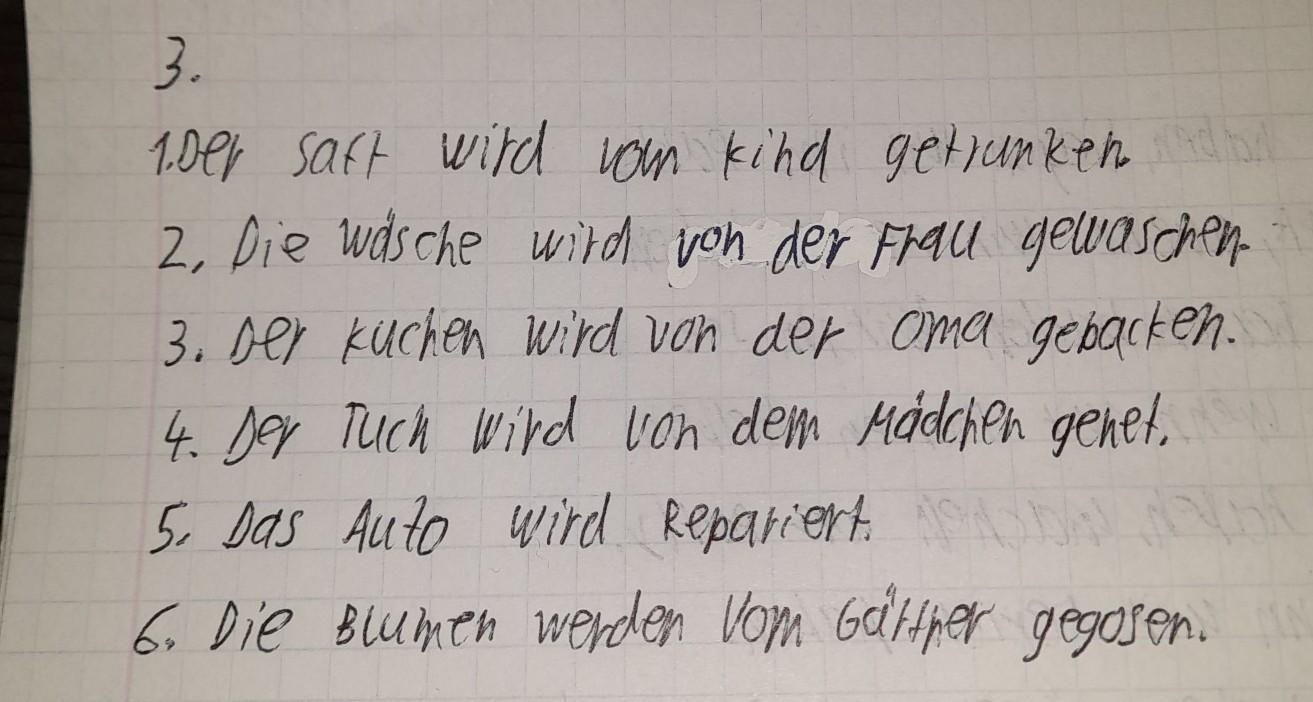 3.
1. Der saft wird vom kind getrunken.
2, Die wäsche wird von der Frau gewaschen.
3. Der kuchen wird von der oma gebacken.
4. Der Tuch wird von dem Mädchen genet.
5. Das Auto wird Repariert.
6. Die Blumen werden Vom Gärtner gegosen.